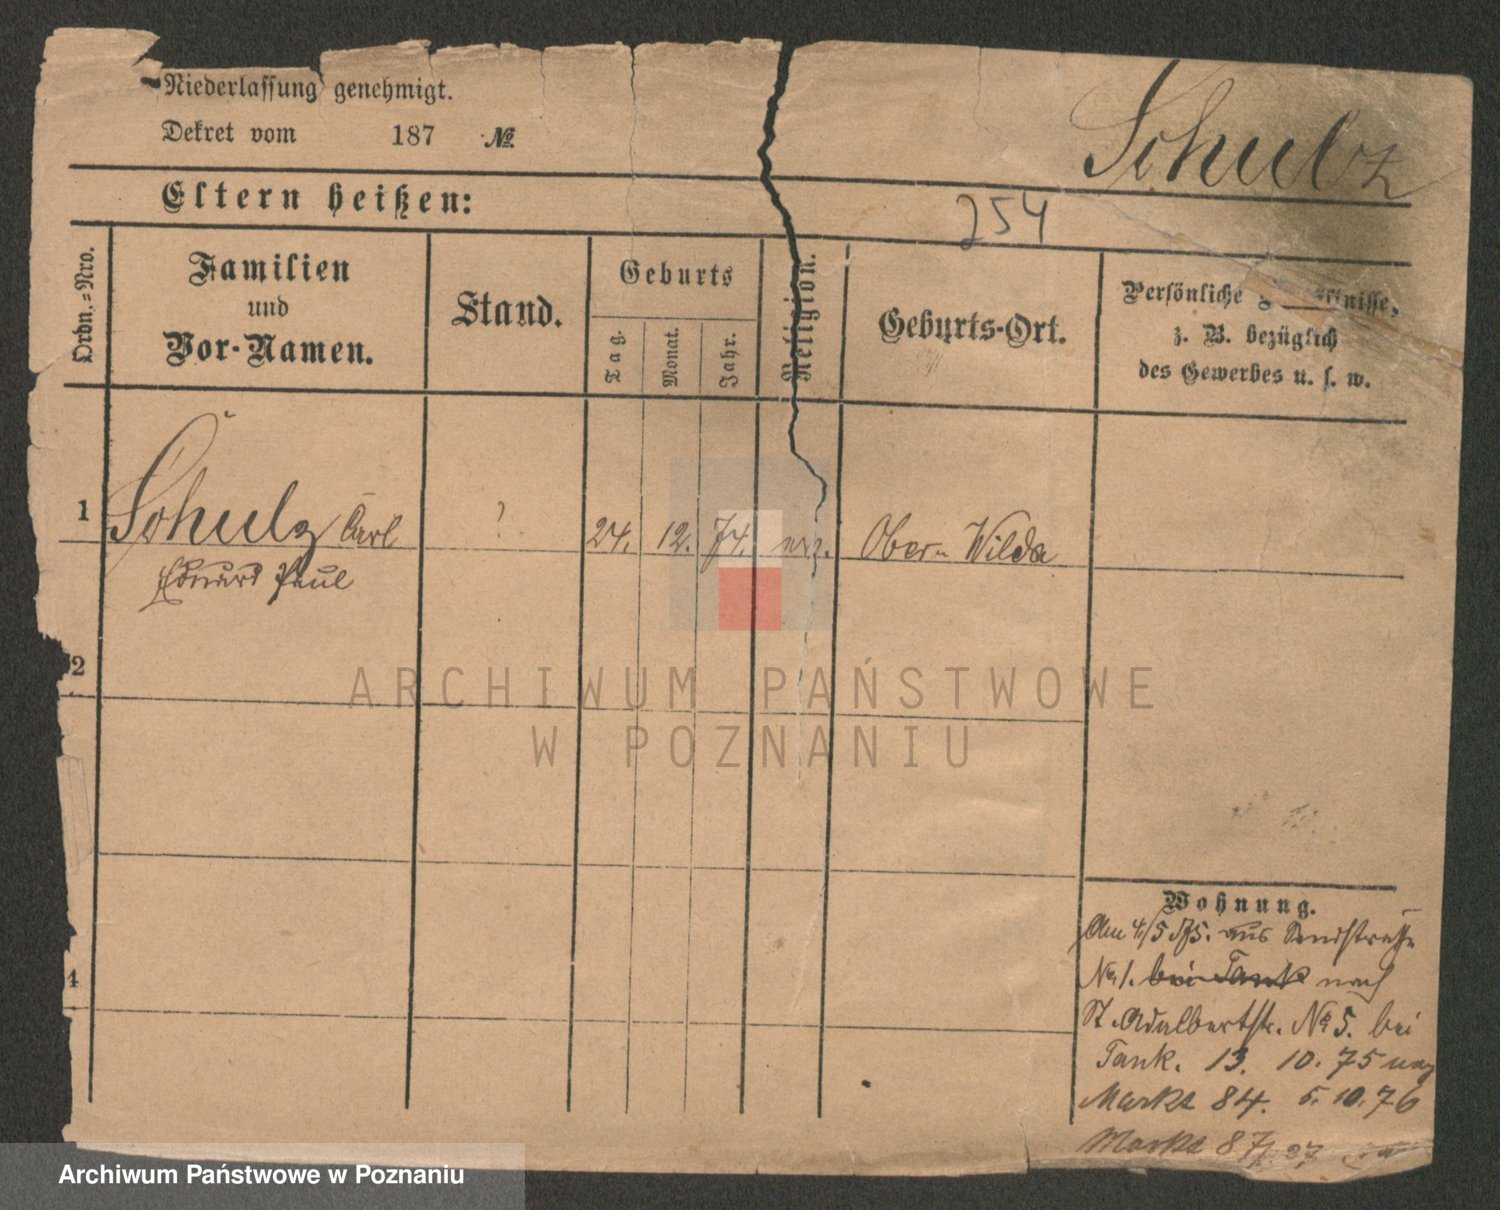 Niederlassung genehmigt.
Dekret vom 187 №
Schulz
Eltern heißen:
254
Ordn.=Nro.
Familien
und
Vor-Namen.
Stand.
Geburts
Tag.
Monat.
Jahr.
Religion.
Geburts-Ort.
Persönliche
z. B. bezüglich
des Gewerbes u. s. w.
1 Schulz Carl ? 24. 12. 74. Ober- Wilda
Eduard Paul
2
4
Wohnung.
Am 4/5 75. aus Sandstraße
No 1. bei Tank nach
St. Adalbertstr. No 5. bei
Tank. 13. 10. 75 nach
Markt 84. 5. 10. 76
Markt 87
ARCHIWUM PAŃSTWOWE
W POZNANIU
Archiwum Państwowe w Poznaniu